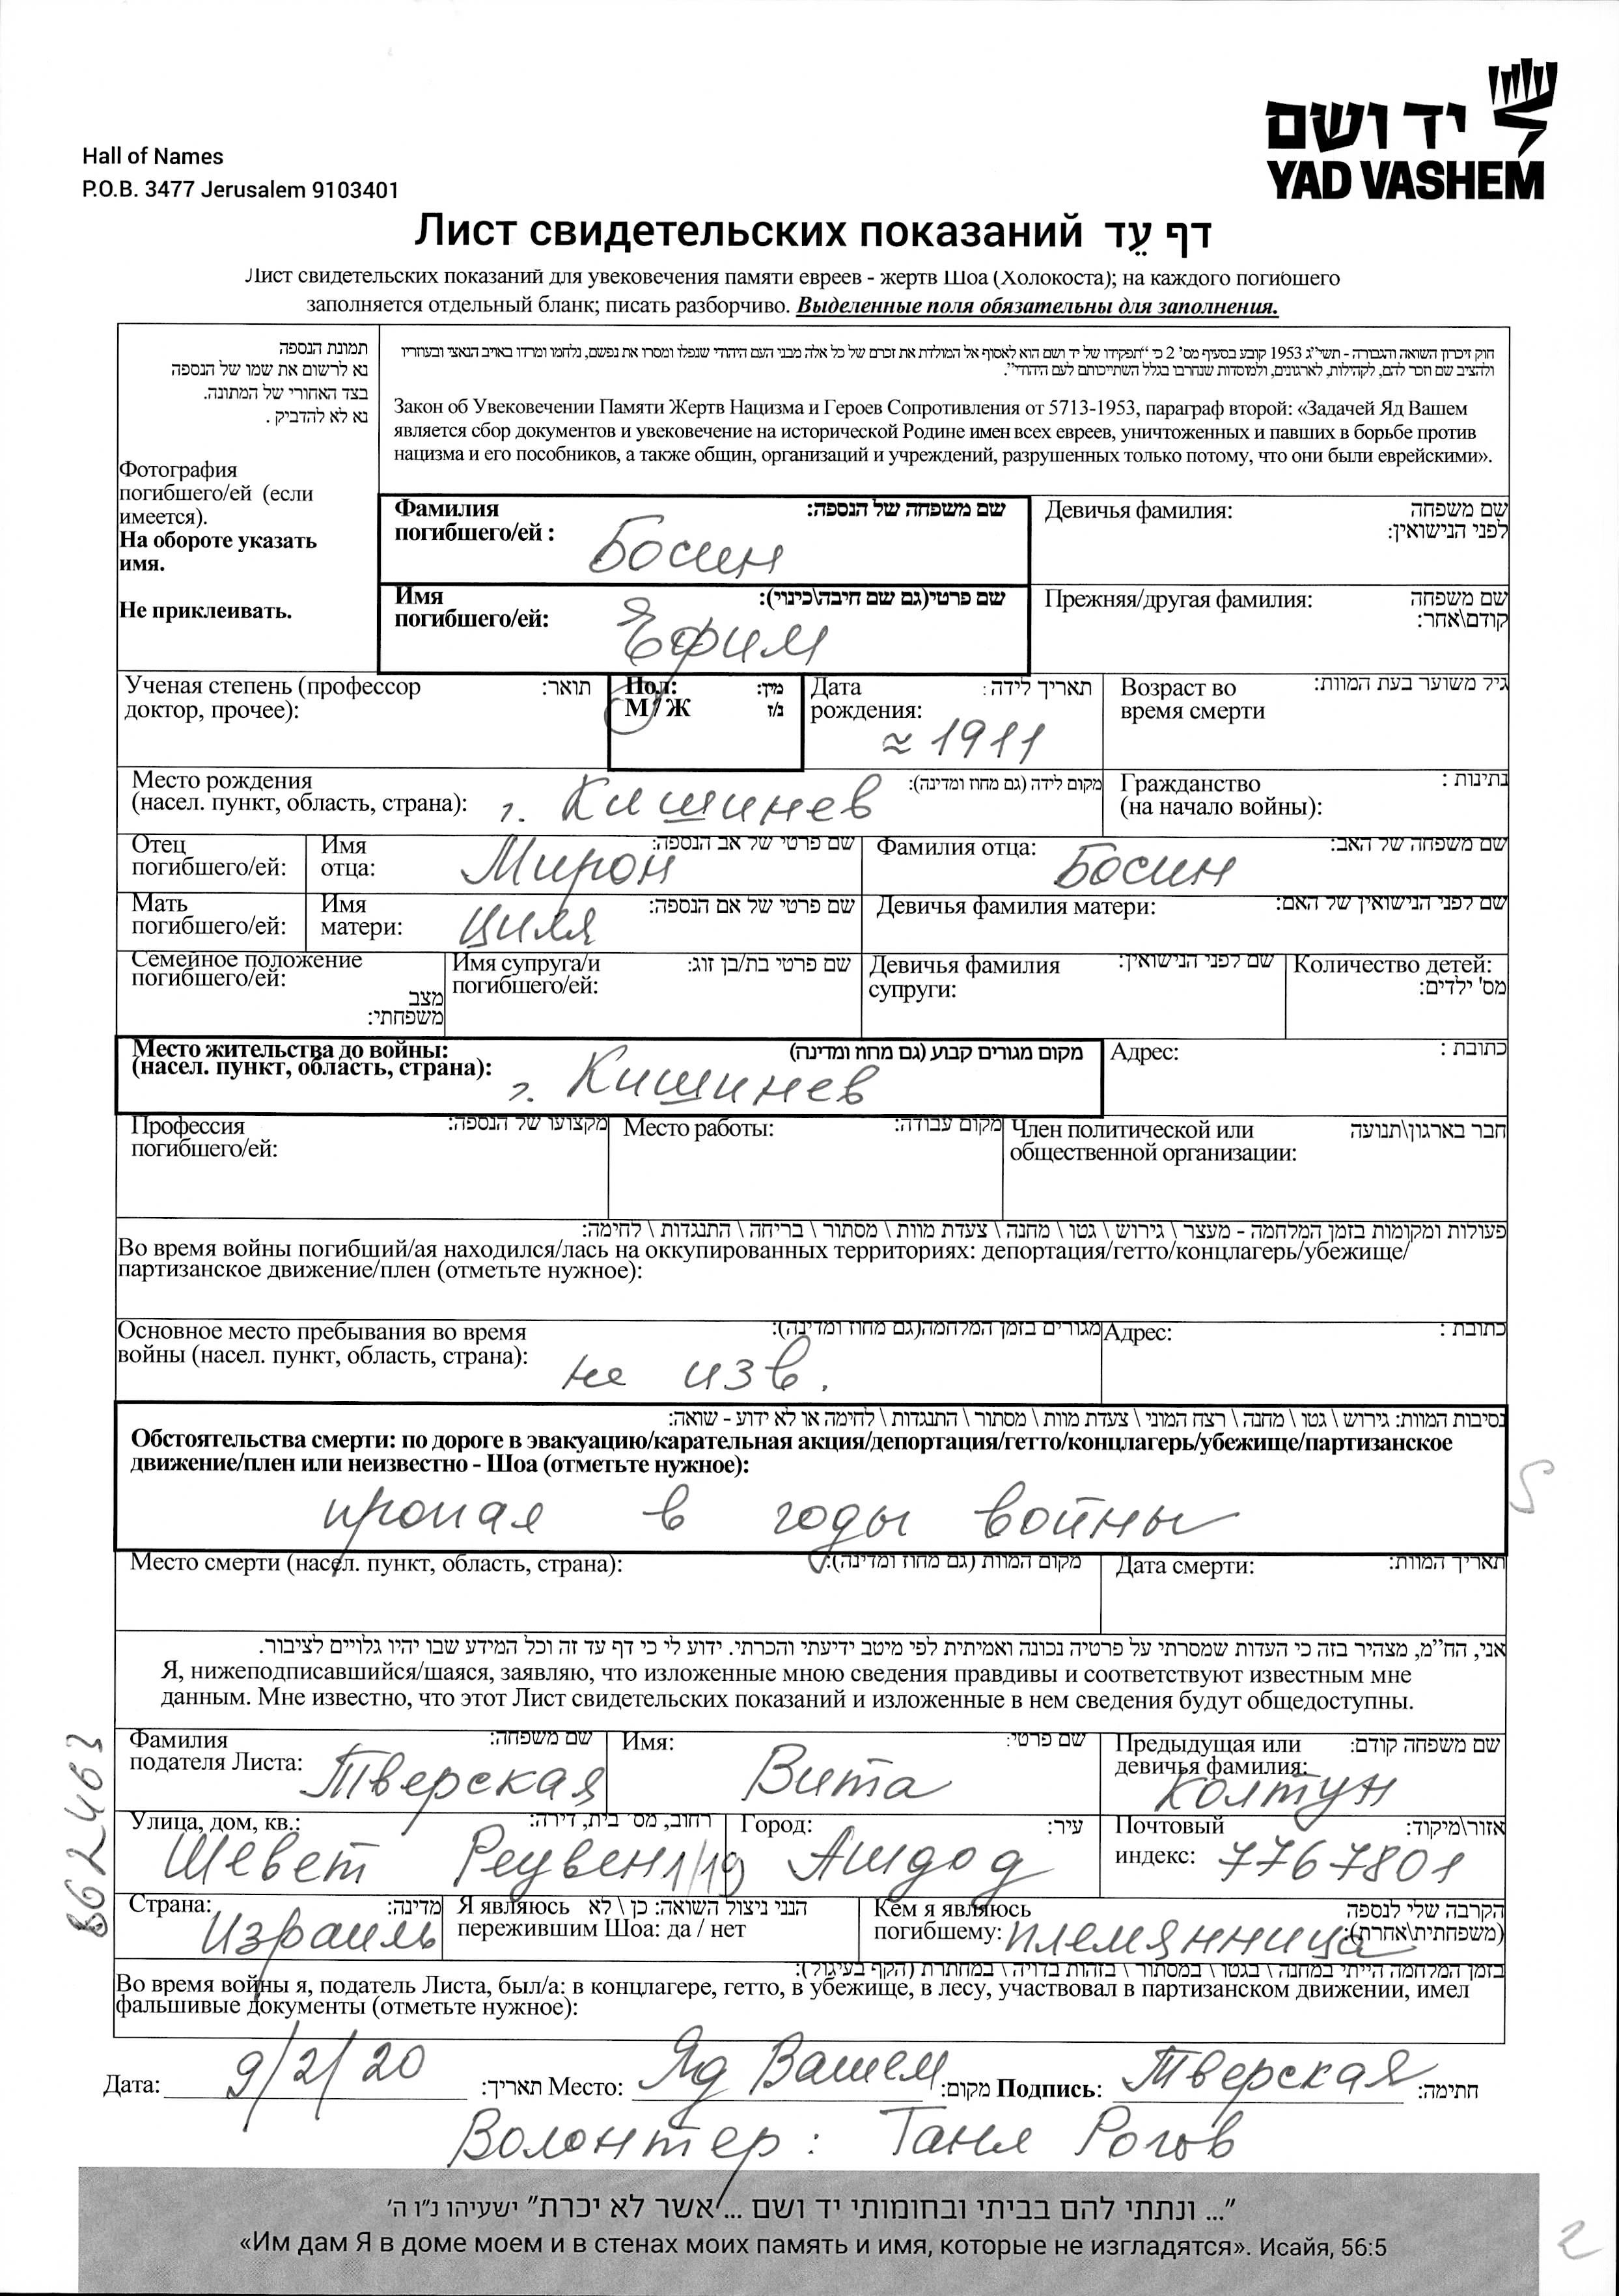 יד ושם
YAD VASHEM
Hall of Names
P.O.B. 3477 Jerusalem 9103401
Лист свидетельских показаний דף עֵד
Лист свидетельских показаний для увековечения памяти евреев - жертв Шоа (Холокоста); на каждого погибшего
заполняется отдельный бланк; писать разборчиво. Выделенные поля обязательны для заполнения.
תמונת הנספה
נא לרשום את שמו של הנספה
בצד האחורי של המתונה.
נא לא להדביק .
Фотография
погибшего/ей (если
имеется).
На обороте указать
имя.
Не приклеивать.
חוק זיכרון השואה והגבורה - תשי״ג 1953 קובע בסעיף מס' 2 כי "תפקידו של יד ושם הוא לאסוף אל המולדת את זכרם של כל אלה מבני העם היהודי שנפלו ומסרו את נפשם, נלחמו ומרדו באויב הנאצי ובעוזריו
ולהציב שם וזכר להם, לקהילות, לארגונים, ולמוסדות שנחרבו בגלל השתייכותם לעם היהודי".
Закон об Увековечении Памяти Жертв Нацизма и Героев Сопротивления от 5713-1953, параграф второй: «Задачей Яд Вашем
является сбор документов и увековечение на исторической Родине имен всех евреев, уничтоженных и павших в борьбе против
нацизма и его пособников, а также общин, организаций и учреждений, разрушенных только потому, что они были еврейскими».
Фамилия שם משפחה של הנספה:
погибшего/ей :
Босин
Девичья фамилия: שם משפחה
לפני הנישואין:
Имя שם פרטי(גם שם חיבה\כינוי):
погибшего/ей:
Ефим
Прежняя/другая фамилия: שם משפחה
קודם\אחר:
Ученая степень (профессор תואר:
доктор, прочее):
Пол: מין:
М / Ж נ/ז
Дата תאריך לידה:
рождения:
≈ 1911
Возраст во גיל משוער בעת המוות:
время смерти
Место рождения מקום לידה (גם מחוז ומדינה):
(насел. пункт, область, страна): г. Кишинев
Гражданство נתינות :
(на начало войны):
Отец
погибшего/ей:
Имя שם פרטי של אב הנספה:
отца: Мирон
Фамилия отца: שם משפחה של האב:
Босин
Мать
погибшего/ей:
Имя שם פרטי של אם הנספה:
матери: Циля
Девичья фамилия матери: שם לפני הנישואין של האם:
Семейное положение
погибшего/ей:
מצב
משפחתי:
Имя супруга/и שם פרטי בת/בן זוג:
погибшего/ей:
Девичья фамилия שם לפני הנישואין:
супруги:
Количество детей:
מס' ילדים:
Место жительства до войны: מקום מגורים קבוע (גם מחוז ומדינה)
(насел. пункт, область, страна): г. Кишинев
Адрес: כתובת :
Профессия מקצועו של הנספה:
погибшего/ей:
Место работы: מקום עבודה:
Член политической или חבר בארגון\תנועה
общественной организации:
פעולות ומקומות בזמן המלחמה - מעצר \ גירוש \ גטו \ מחנה \ צעדת מוות \ מסתור \ בריחה \ התנגדות \ לחימה:
Во время войны погибший/ая находился/лась на оккупированных территориях: депортация/гетто/концлагерь/убежище/
партизанское движение/плен (отметьте нужное):
Основное место пребывания во время מגורים בזמן המלחמה(גם מחוז ומדינה):
войны (насел. пункт, область, страна): не изв.
Адрес: כתובת :
נסיבות המוות: גירוש \ גטו \ מחנה \ רצח המוני \ צעדת מוות \ מסתור \ התנגדות \ לחימה או לא ידוע - שואה:
Обстоятельства смерти: по дороге в эвакуацию/карательная акция/депортация/гетто/концлагерь/убежище/партизанское
движение/плен или неизвестно - Шоа (отметьте нужное):
пропал в годы войны
5
Место смерти (насел. пункт, область, страна): מקום המוות (גם מחוז ומדינה):
Дата смерти: תאריך המוות:
אני, הח"מ, מצהיר בזה כי העדות שמסרתי על פרטיה נכונה ואמיתית לפי מיטב ידיעתי והכרתי. ידוע לי כי דף עד זה וכל המידע שבו יהיו גלויים לציבור.
Я, нижеподписавшийся/шаяся, заявляю, что изложенные мною сведения правдивы и соответствуют известным мне
данным. Мне известно, что этот Лист свидетельских показаний и изложенные в нем сведения будут общедоступны.
Фамилия שם משפחה:
подателя Листа: Тверская
Имя: שם פרטי:
Вита
Предыдущая или שם משפחה קודם:
девичья фамилия:
Колтун
Улица, дом, кв.: רחוב, מס' בית, דירה:
Шевет Реувен 1/19
Город: עיר:
Ашдод
Почтовый אזור\מיקוד:
индекс: 7767801
Страна: מדינה:
Израиль
Я являюсь הנני ניצול השואה: כן \ לא
пережившим Шоа: да / нет
Кем я являюсь הקרבה שלי לנספה
погибшему: племянница (משפחתית\אחרת):
בזמן המלחמה הייתי במחנה \ בגטו \ במסתור \ בזהות בדויה \ במחתרת (הקף בעיגול):
Во время войны я, податель Листа, был/а: в концлагере, гетто, в убежище, в лесу, участвовал в партизанском движении, имел
фальшивые документы (отметьте нужное):
Дата: 9/2/20 תאריך: Место: Яд Вашем מקום: Подпись: Тверская חתימה:
Волонтер: Таня Рогов
"... ונתתי להם בביתי ובחומותי יד ושם ... אשר לא יכרת" ישעיהו נ"ו ה'
«Им дам Я в доме моем и в стенах моих память и имя, которые не изгладятся». Исайя, 56:5
2